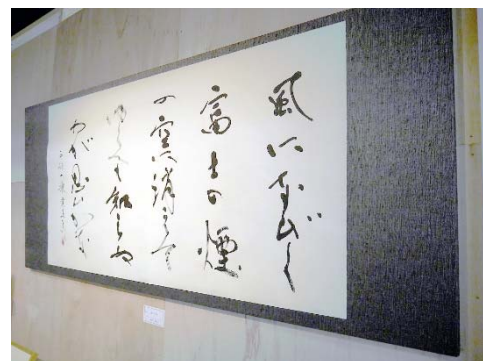 風になびく
富士の煙
の空に消えて
ゆくへも知らぬ
わが思ひかな